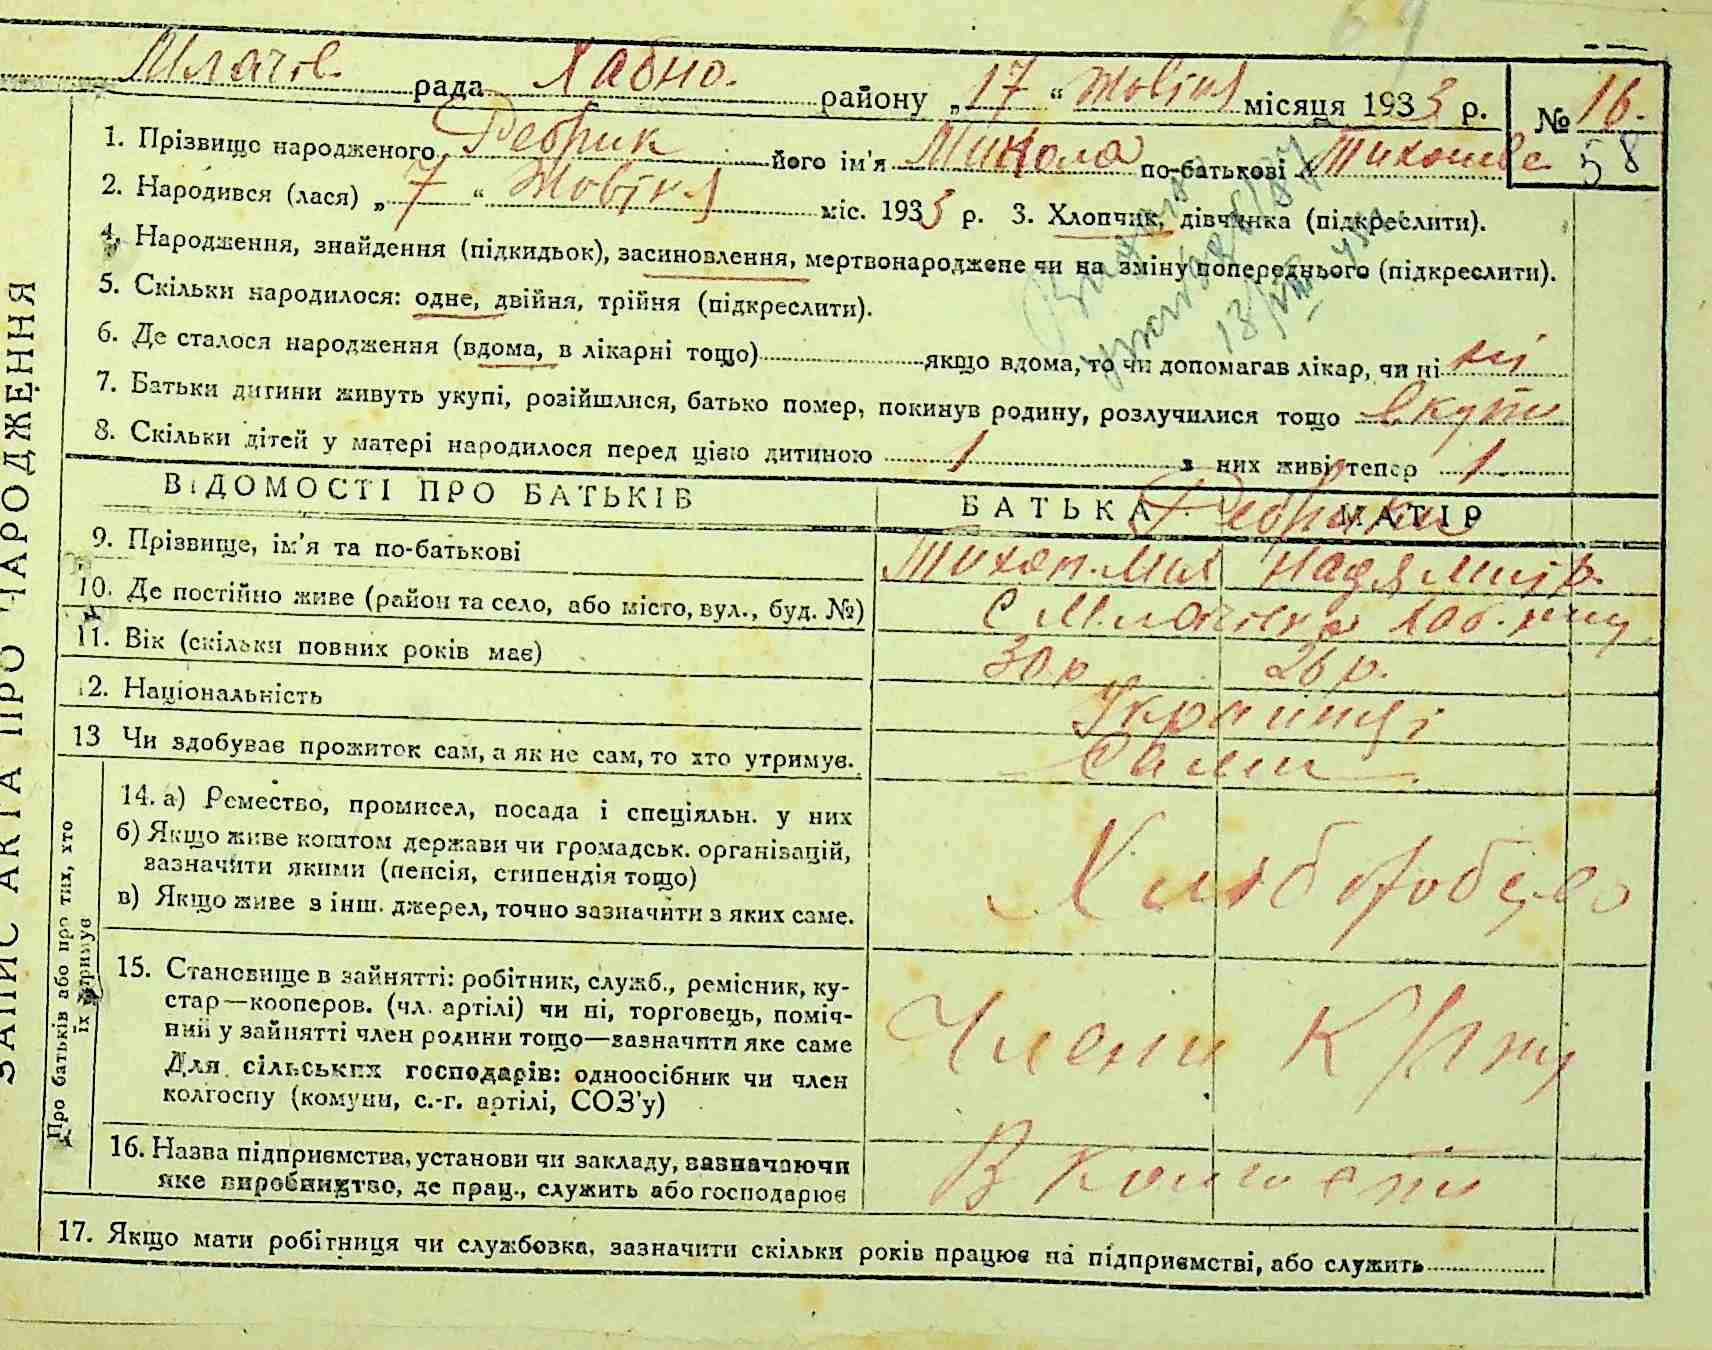 Млачів. рада Хабно. району „17“ Жовтня місяця 1933 р. № 16.
1. Прізвище народженого Ребрик його ім'я Микола по-батькові Тихонов 58
2. Народився (лася) „7“ Жовтня міс. 1933 р. 3. Хлопчик, дівчинка (підкреслити).
4. Народження, знайдення (підкидьок), засиновлення, мертвонароджене чи на зміну попереднього (підкреслити).
5. Скільки народилося: одне, двійня, трійня (підкреслити).
6. Де сталося народження (вдома, в лікарні тощо) якщо вдома, то чи допомагав лікар, чи ні ні
7. Батьки дитини живуть укупі, розійшлися, батько помер, покинув родину, розлучилися тощо вкупі
8. Скільки дітей у матері народилося перед цією дитиною 1 з них живі тепер 1
ЗАПИС АКТА ПРО НАРОДЖЕННЯ
ВІДОМОСТІ ПРО БАТЬКІВ БАТЬКА МАТІР
9. Прізвище, ім'я та по-батькові Тихон. Мих Надя
10. Де постійно живе (район та село, або місто, вул., буд. №) с Млачівка Хаб.
11. Вік (скільки повних років має) 30 р 26 р.
12. Національність Українці
13 Чи здобуває прожиток сам, а як не сам, то хто утримує. Сами
Про батьків або про тих, хто
їх утримує
14. а) Ремество, промисел, посада і спеціяльн. у них
б) Якщо живе коштом держави чи громадськ. організацій,
вазначити якими (пенсія, стипендія тощо)
в) Якщо живе з інш. джерел, точно зазначити з яких саме.
15. Становище в зайнятті: робітник, служб., ремісник, ку-
стар—кооперов. (чл. артілі) чи ні, торговець, поміч-
ний у зайнятті член родини тощо—зазначити яке саме
Для сільських господарів: одноосібник чи член
колгоспу (комуни, с.-г. артілі, СОЗ'у)
Члени
16. Назва підприємства, установи чи закладу, вазначаючи
яке виробництво, де прац., служить або господарює
В
17. Якщо мати робітниця чи службовка, зазначити скільки років працює на підприємстві, або служить